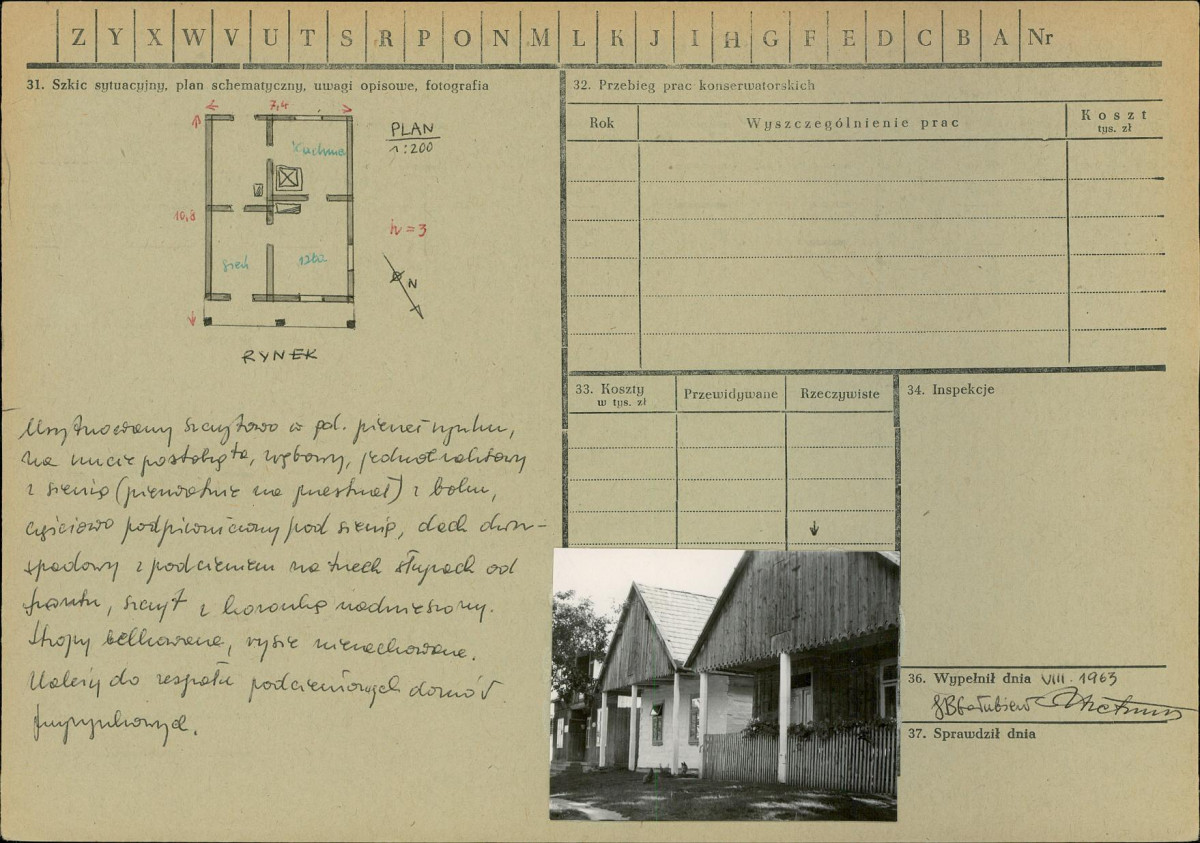 Z Y X W V U T S R P O N M L K J I H G F E D C B A Nr
31. Szkic sytuacyjny, plan schematyczny, uwagi opisowe, fotografia
7,4
PLAN
1:200
kuchnia
10,8
h = 3
sień
izba
N
RYNEK
Usytuowany szczytowo w pd. pierzei rynku,
na rzucie prostokąta, węgłowy, jednotraktowy
z sienią (pierwotnie na przestrzał) z boku,
częściowo podpiwniczony pod sienią, dach dwu-
spadowy z podcieniem na trzech słupach od
frontu, szczyt z koronką nadwieszony.
Stropy belkowane, rysie niezachowane.
Należy do zespołu podcieniowych domów
przyrynkowych.
32. Przebieg prac konserwatorskich
Rok
Wyszczególnienie prac
Koszt
tys. zł
33. Koszty
w tys. zł
Przewidywane
Rzeczywiste
34. Inspekcje
36. Wypełnił dnia VIII. 1963
37. Sprawdził dnia